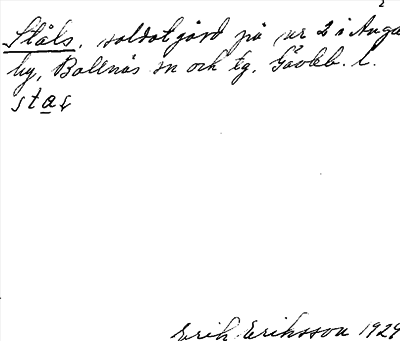 2
Ståls, soldatgård på nr 2 i Änga
by, Bollnäs sn och tg. Gävleb. l.
stås
Erik Eriksson 1929